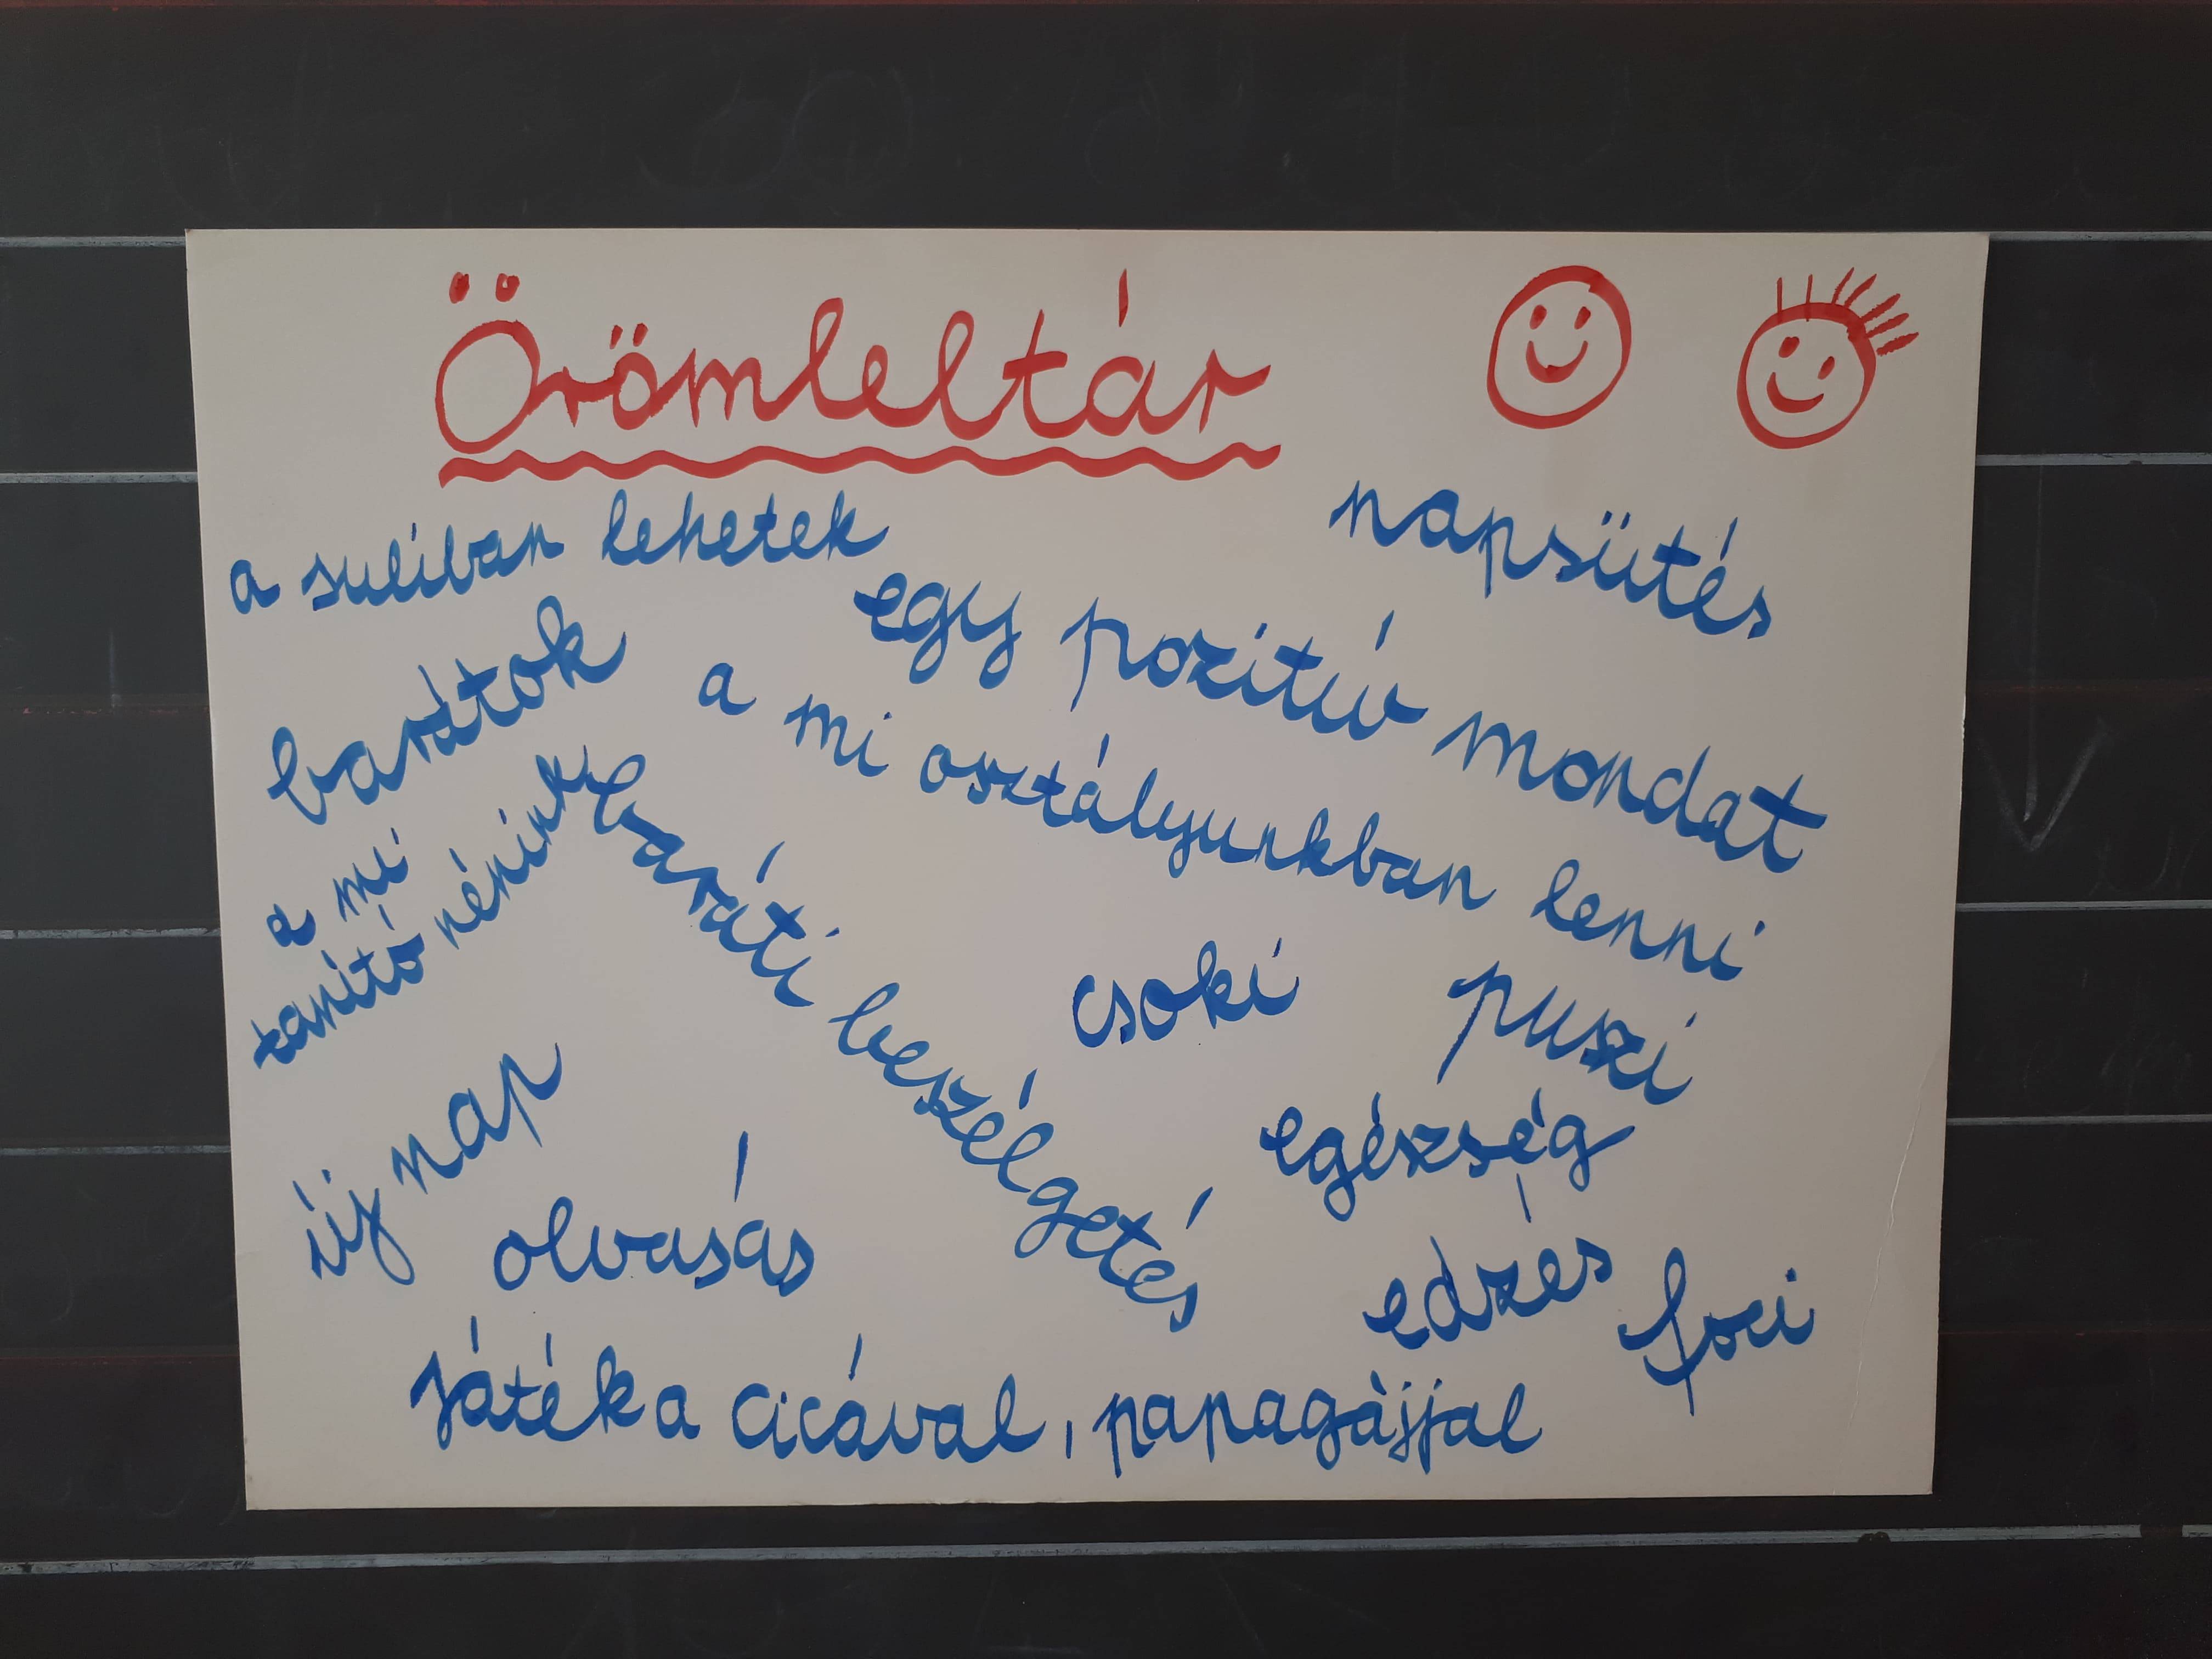 Örömleltár
a suliban lehetek
napsütés
egy pozitív mondat
barátok
a mi osztályunkban lenni
a mi
tanító nénink
baráti beszélgetés
csoki
puszi
új nap
egészség
olvasás
edzés
foci
Játék a cicával, papagájjal